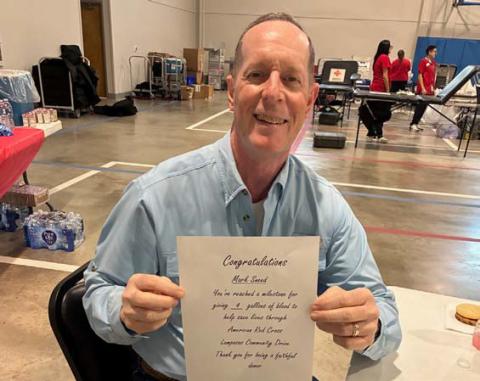 Congratulations
Mark Sneed
You've reached a milestone for
giving 4 gallons of blood to
help save lives through
American Red Cross
Lampasas Community Drive.
Thank you for being a faithful
donor